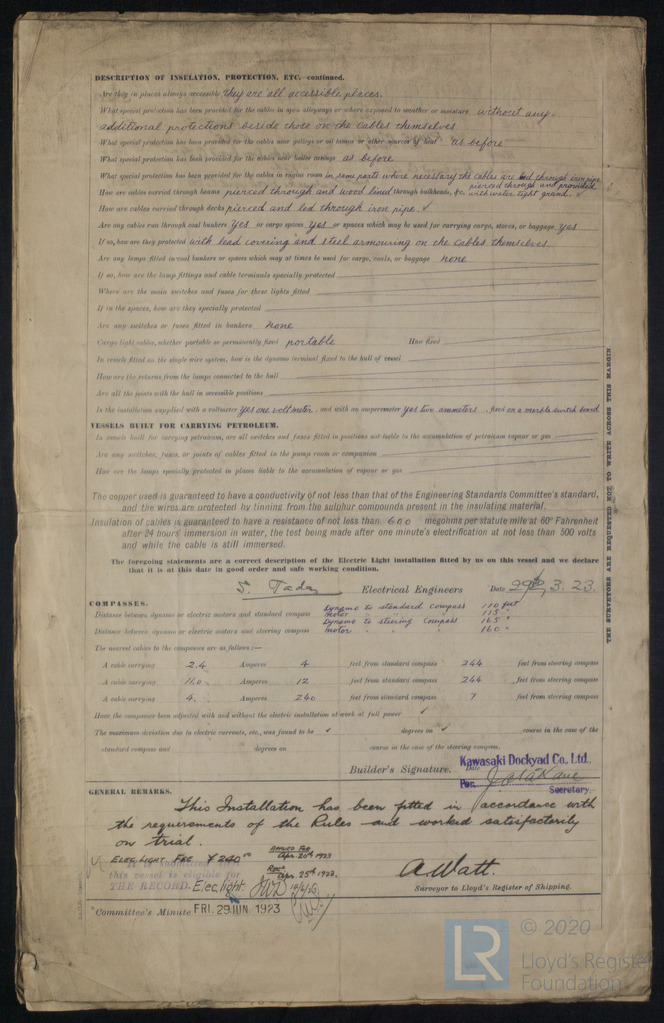 DESCRIPTION OF INSULATION, PROTECTION, ETC. continued.
Are they in places always accessible they are all accessible places.
What special protection has been provided for the cables in open alleyways or where exposed to weather or moisture without any
additional protections beside those on the cables themselves
What special protection has been provided for the cables near galleys or oil lamps or other sources of heat as before
What special protection has been provided for the cables near boiler casings as before
What special protection has been provided for the cables in engine room in some parts where necessary the cables are led through iron pipe
How are cables carried through beams pierced through and wood lined through bulkheads, &c. pierced through and provided with water tight gland. ✓
How are cables carried through decks pierced and led through iron pipe. ✓
Are any cables run through coal bunkers Yes or cargo spaces Yes or spaces which may be used for carrying cargo, stores, or baggage Yes
If so, how are they protected with lead covering and steel armouring on the cables themselves
Are any lamps fitted in coal bunkers or spaces which may at times be used for cargo, coals, or baggage none
If so, how are the lamp fittings and cable terminals specially protected
Where are the main switches and fuses for these lights fitted
If in the spaces, how are they specially protected
Are any switches or fuses fitted in bunkers none
Cargo light cables, whether portable or permanently fixed portable How fixed
In vessels fitted on the single wire system, how is the dynamo terminal fixed to the hull of vessel
How are the returns from the lamps connected to the hull
Are all the joints with the hull in accessible positions
Is the installation supplied with a voltmeter yes one voltmeter, and with an amperemeter yes two ammeters, fixed on a marble switch board
VESSELS BUILT FOR CARRYING PETROLEUM.
In vessels built for carrying petroleum, are all switches and fuses fitted in positions not liable to the accumulation of petroleum vapour or gas
Are any switches, fuses, or joints of cables fitted in the pump room or companion
How are the lamps specially protected in places liable to the accumulation of vapour or gas
The copper used is guaranteed to have a conductivity of not less than that of the Engineering Standards Committee's standard,
and the wires are protected by tinning from the sulphur compounds present in the insulating material.
Insulation of cables is guaranteed to have a resistance of not less than 600 megohms per statute mile at 60° Fahrenheit
after 24 hours' immersion in water, the test being made after one minute's electrification at not less than 500 volts
and while the cable is still immersed.
The foregoing statements are a correct description of the Electric Light installation fitted by us on this vessel and we declare
that it is at this date in good order and safe working condition.
S. Tada Electrical Engineers Date 29, 3. 23.
COMPASSES.
Distance between dynamo or electric motors and standard compass Dynamo to standard compass 110 feet
motor " " " 115 "
Distance between dynamo or electric motors and steering compass Dynamo to steering compass 165 "
motor " " " 160 "
The nearest cables to the compasses are as follows:—
A cable carrying 2.4 Amperes 4 feet from standard compass 244 feet from steering compass
A cable carrying 11.0 Amperes 12 feet from standard compass 244 feet from steering compass
A cable carrying 4. Amperes 240 feet from standard compass 7 feet from steering compass
Have the compasses been adjusted with and without the electric installation at work at full power ✓
The maximum deviation due to electric currents, etc., was found to be ✓ degrees on ✓ course in the case of the
standard compass and degrees on course in the case of the steering compass.
Kawasaki Dockyad Co. Ltd.,
Builder's Signature. Date
Per. Secretary.
GENERAL REMARKS.
This Installation has been fitted in accordance with
the requirements of the Rules and worked satisfactorily
on trial.
ELEC. LIGHT FEE ¥240.00 Apr. 20th 1923
It is
this vessel is eligible for Apr. 25th 1923.
THE RECORD. Elec. light A. Watt.
Surveyor to Lloyd's Register of Shipping.
Committee's Minute FRI. 29 JUN 1923
THE SURVEYORS ARE REQUESTED NOT TO WRITE ACROSS THIS MARGIN
LR © 2020
Lloyd's Register
Foundation